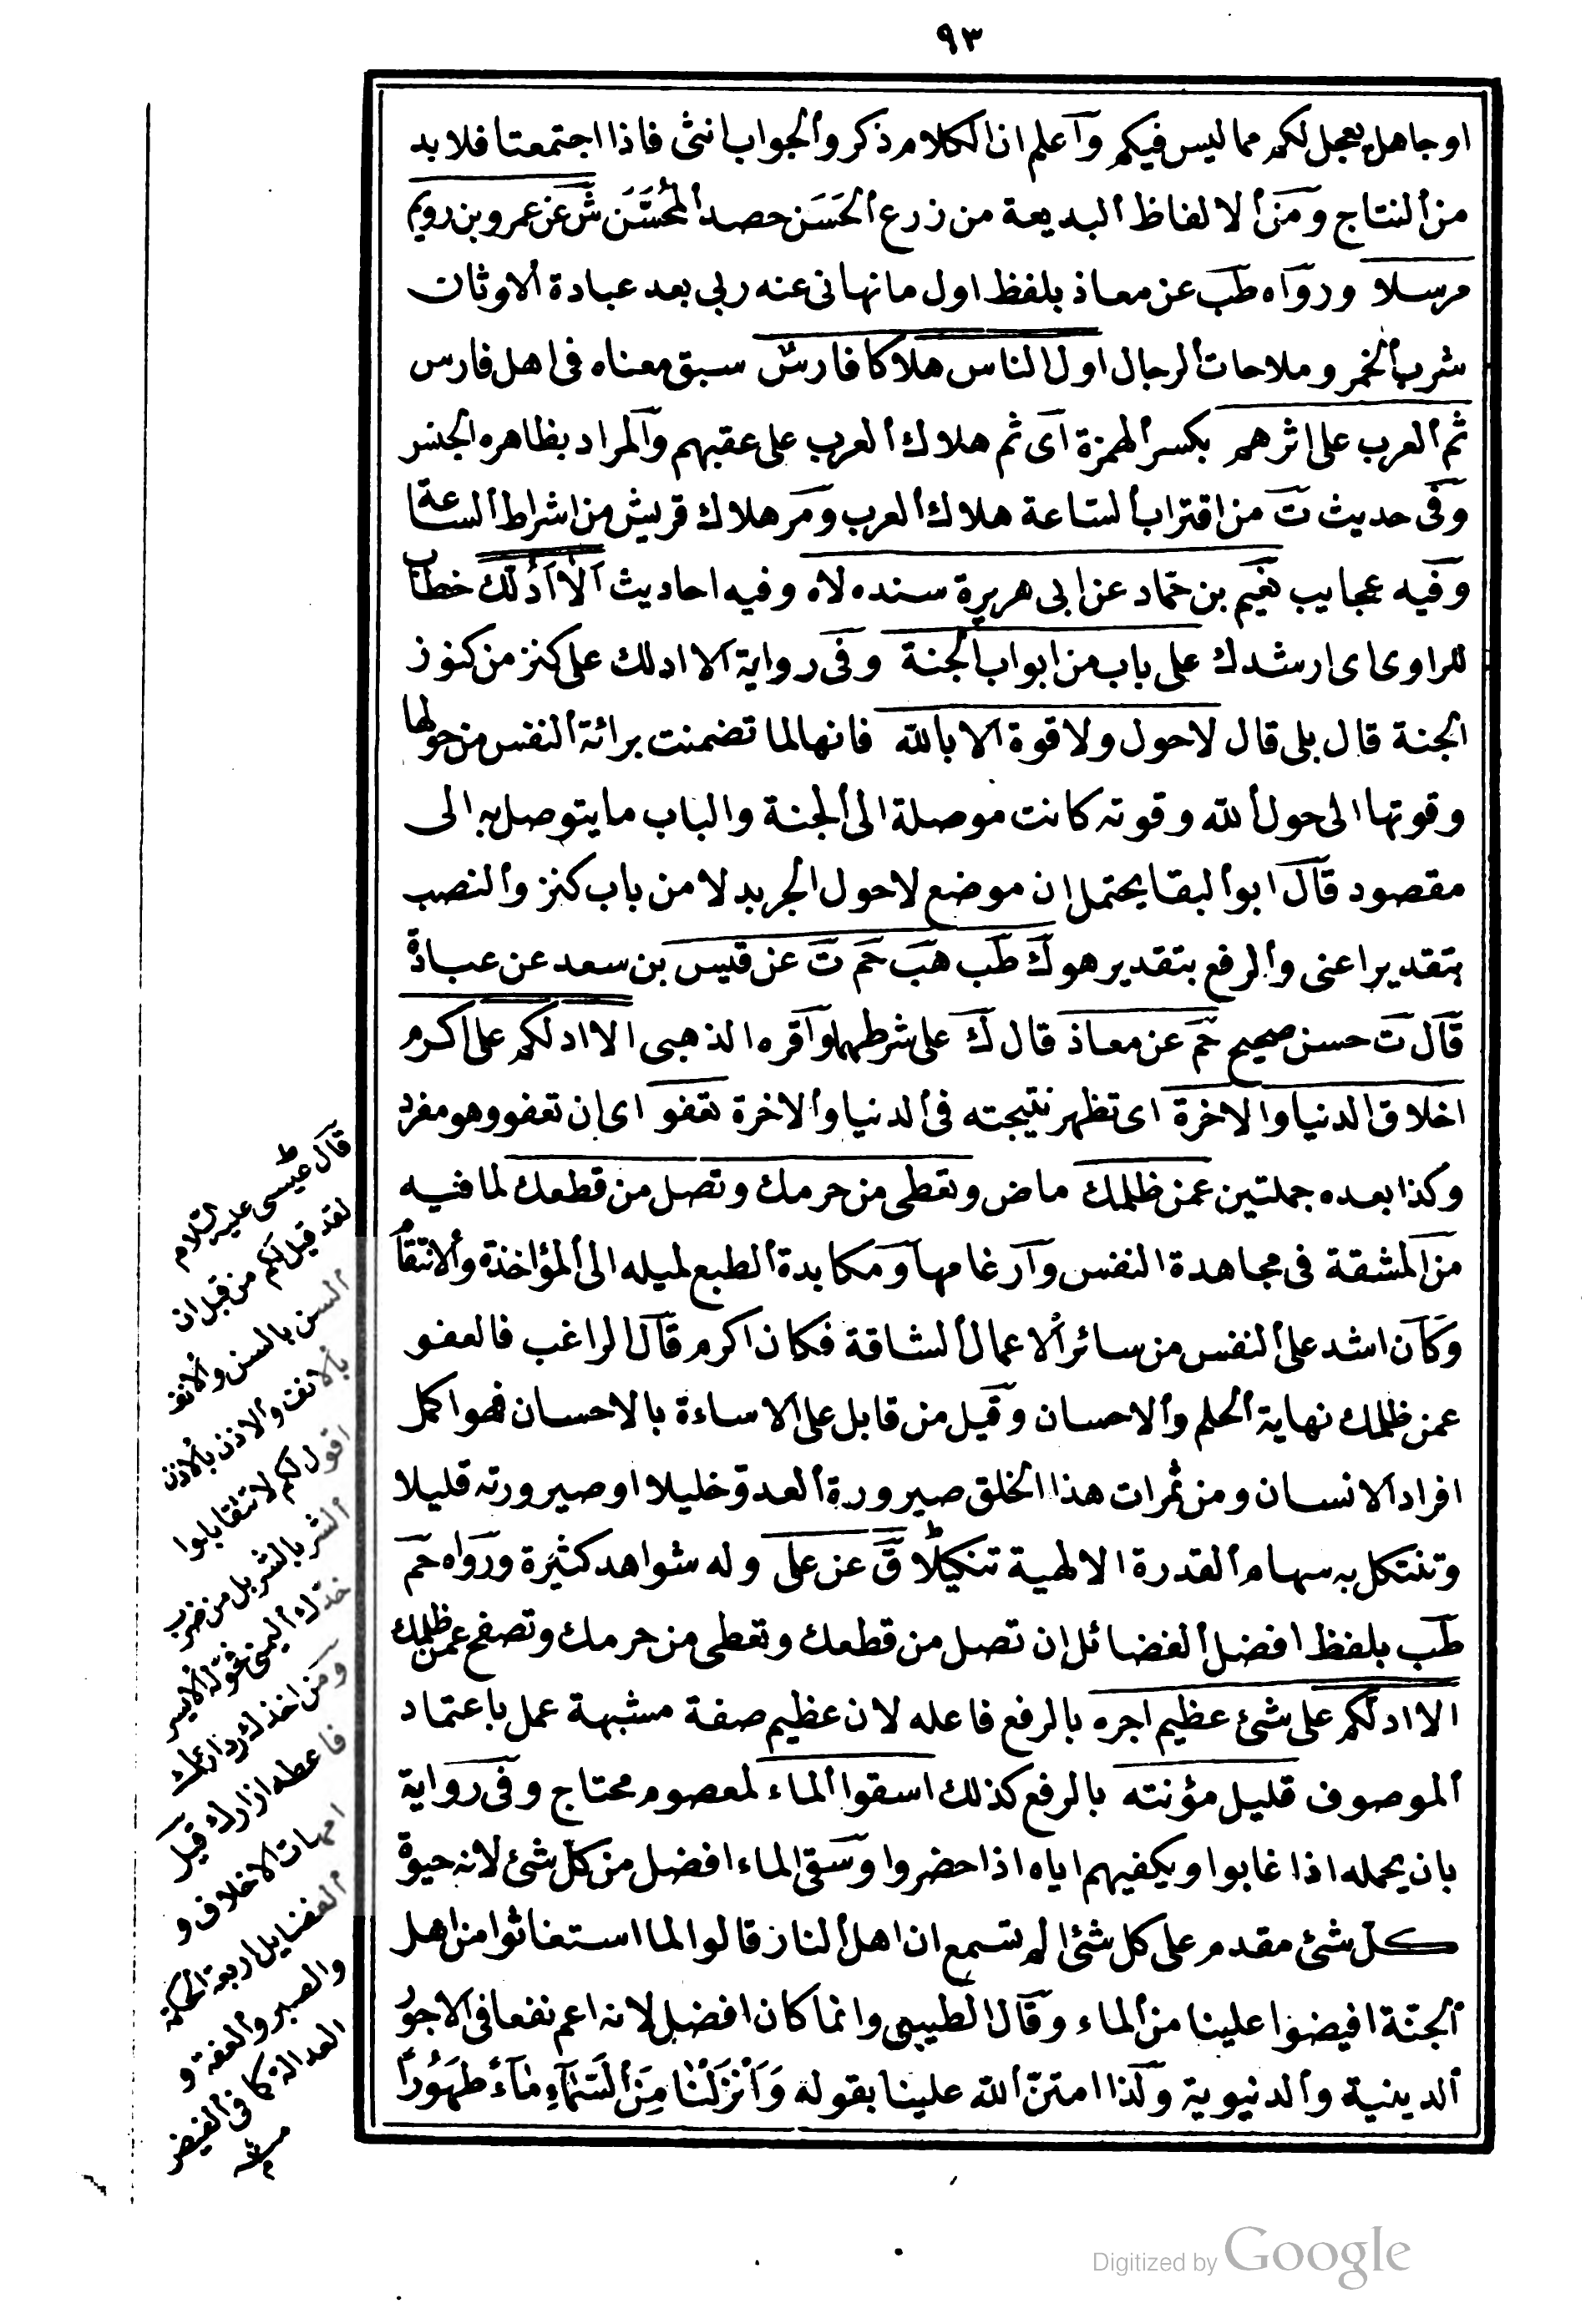 ٩٣
او جاهل يعجل لكم مما ليس فيكم وآعلم ان الكلام ذكر وألجواب انثى فاذا اجتمعتا فلا بد
من ألنتاج ومن ألالفاظ ألبديعة من زرع ألحَسَن حصد ألمحُسَّنَ شَ عن عمرو بن رويم
مرسلا ورواه طب عن معاذ بلفظ اول ما نهانى عنه ربى بعد عبادة ألاوثان
شرب ألخمر وملاحات ألرجال اول الناس هلاكا فارس سبق معناه فى اهل فارس
ثم ألعرب على اثرهم بكسر ألهمزة اى ثم هلاك ألعرب على عقبهم وآلمراد بظاهره الجنس
وفى حديث ت من اقتراب ألساعة هلاك ألعرب ومر هلاك قريش من اشراط ألساعة
وفيه عجايب نعيم بن حماد عن ابى هريرة سنده لاه وفيه احاديث اَلا اَدُلكَ خطاب
للراوى اى ارشدك على باب من ابواب ألجنة وفى رواية الا ادلك على كنز من كنوز
الجنة قال بلى قال لا حول ولا قوة الا بالله فانها لما تضمنت برائة ألنفس من حولها
وقوتها الى حول ألله وقوته كانت موصلة الى ألجنة والباب ما يتوصل به الى
مقصود قال ابو ألبقا يحتمل ان موضع لا حول الجر بدلا من باب كنز وألنصب
بتقدير اعنى وألرفع بتقدير هو ك طب هب حم ت عن قيس بن سعد عن عبادة
قال ت حسن صحيح حم عن معاذ قال ك على شرطهما وآقره الذهبى الا ادلكم على اكرم
اخلاق الدنيا والاخرة اى تظهر نتيجته فى ألدنيا وألاخرة تعفو اى ان تعفو وهو مفرد
وكذا بعده جملتين عمن ظلمك ماض وتعطى من حرمك وتصل من قطعك لما فيه
من المشقة فى مجاهدة النفس وآرغامها ومكابدة ألطبع لميله الى ألمؤاخذة وألانتقام
وكان اشد على ألنفس من سائر ألاعمال ألشاقة فكان اكرم قال الراغب فالعفو
عمن ظلمك نهاية ألحلم وألاحسان وقيل من قابل على الاساءة بالاحسان فهو اكمل
افراد الانسان ومن ثمرات هذا الخلق صيرورة ألعدو خليلا او صيرورته قليلا
وتنتكل به سهام ألقدرة الالهية تنكيلا ق عن على وله شواهد كثيرة ورواه حم
طب بلفظ افضل ألفضائل ان تصل من قطعك وتعطى من حرمك وتصفح عمن ظلمك
الا ادلكم على شئ عظيم اجره بالرفع فاعله لان عظيم صفة مشبهة عمل باعتماد
ألموصوف قليل مؤنته بالرفع كذلك اسقوا الماء لمعصوم محتاج وفى رواية
بان يحمله اذا غابوا ويكفيهم اياه اذا حضروا وسقى الماء افضل من كل شئ لانه حيوة
كل شئ مقدم على كل شئ الم تسمع ان اهل ألنار قالوا لما استغاثوا من اهل
ألجنة افيضوا علينا من ألماء وقال الطيبى وانما كان افضل لانه اعم نفعا فى الاجور
ألدينية وألدنيوية ولذا امتن الله علينا بقوله وَاَنْزَلْنَا مِنَ ألسَّمَآءِ مَآءً طَهُورًا
قال عيسى عليه السلام
لقد قيل لكم من قبل ان
ألسن بالسن وألانف
بألانف وألاذن بألاذن
اقول لكم لا تتقابلوا
ألشر بالشر بل من ضرب
خدك أليمنى فحوله الايسر
ومن اخذ ردائك
فاعطه ازارك قيل
امهات الاخلاق و
ألفضايل اربعة ألحكمة
والصبر وألعفة و
العدالة كما فى ألفيض
Digitized by Google